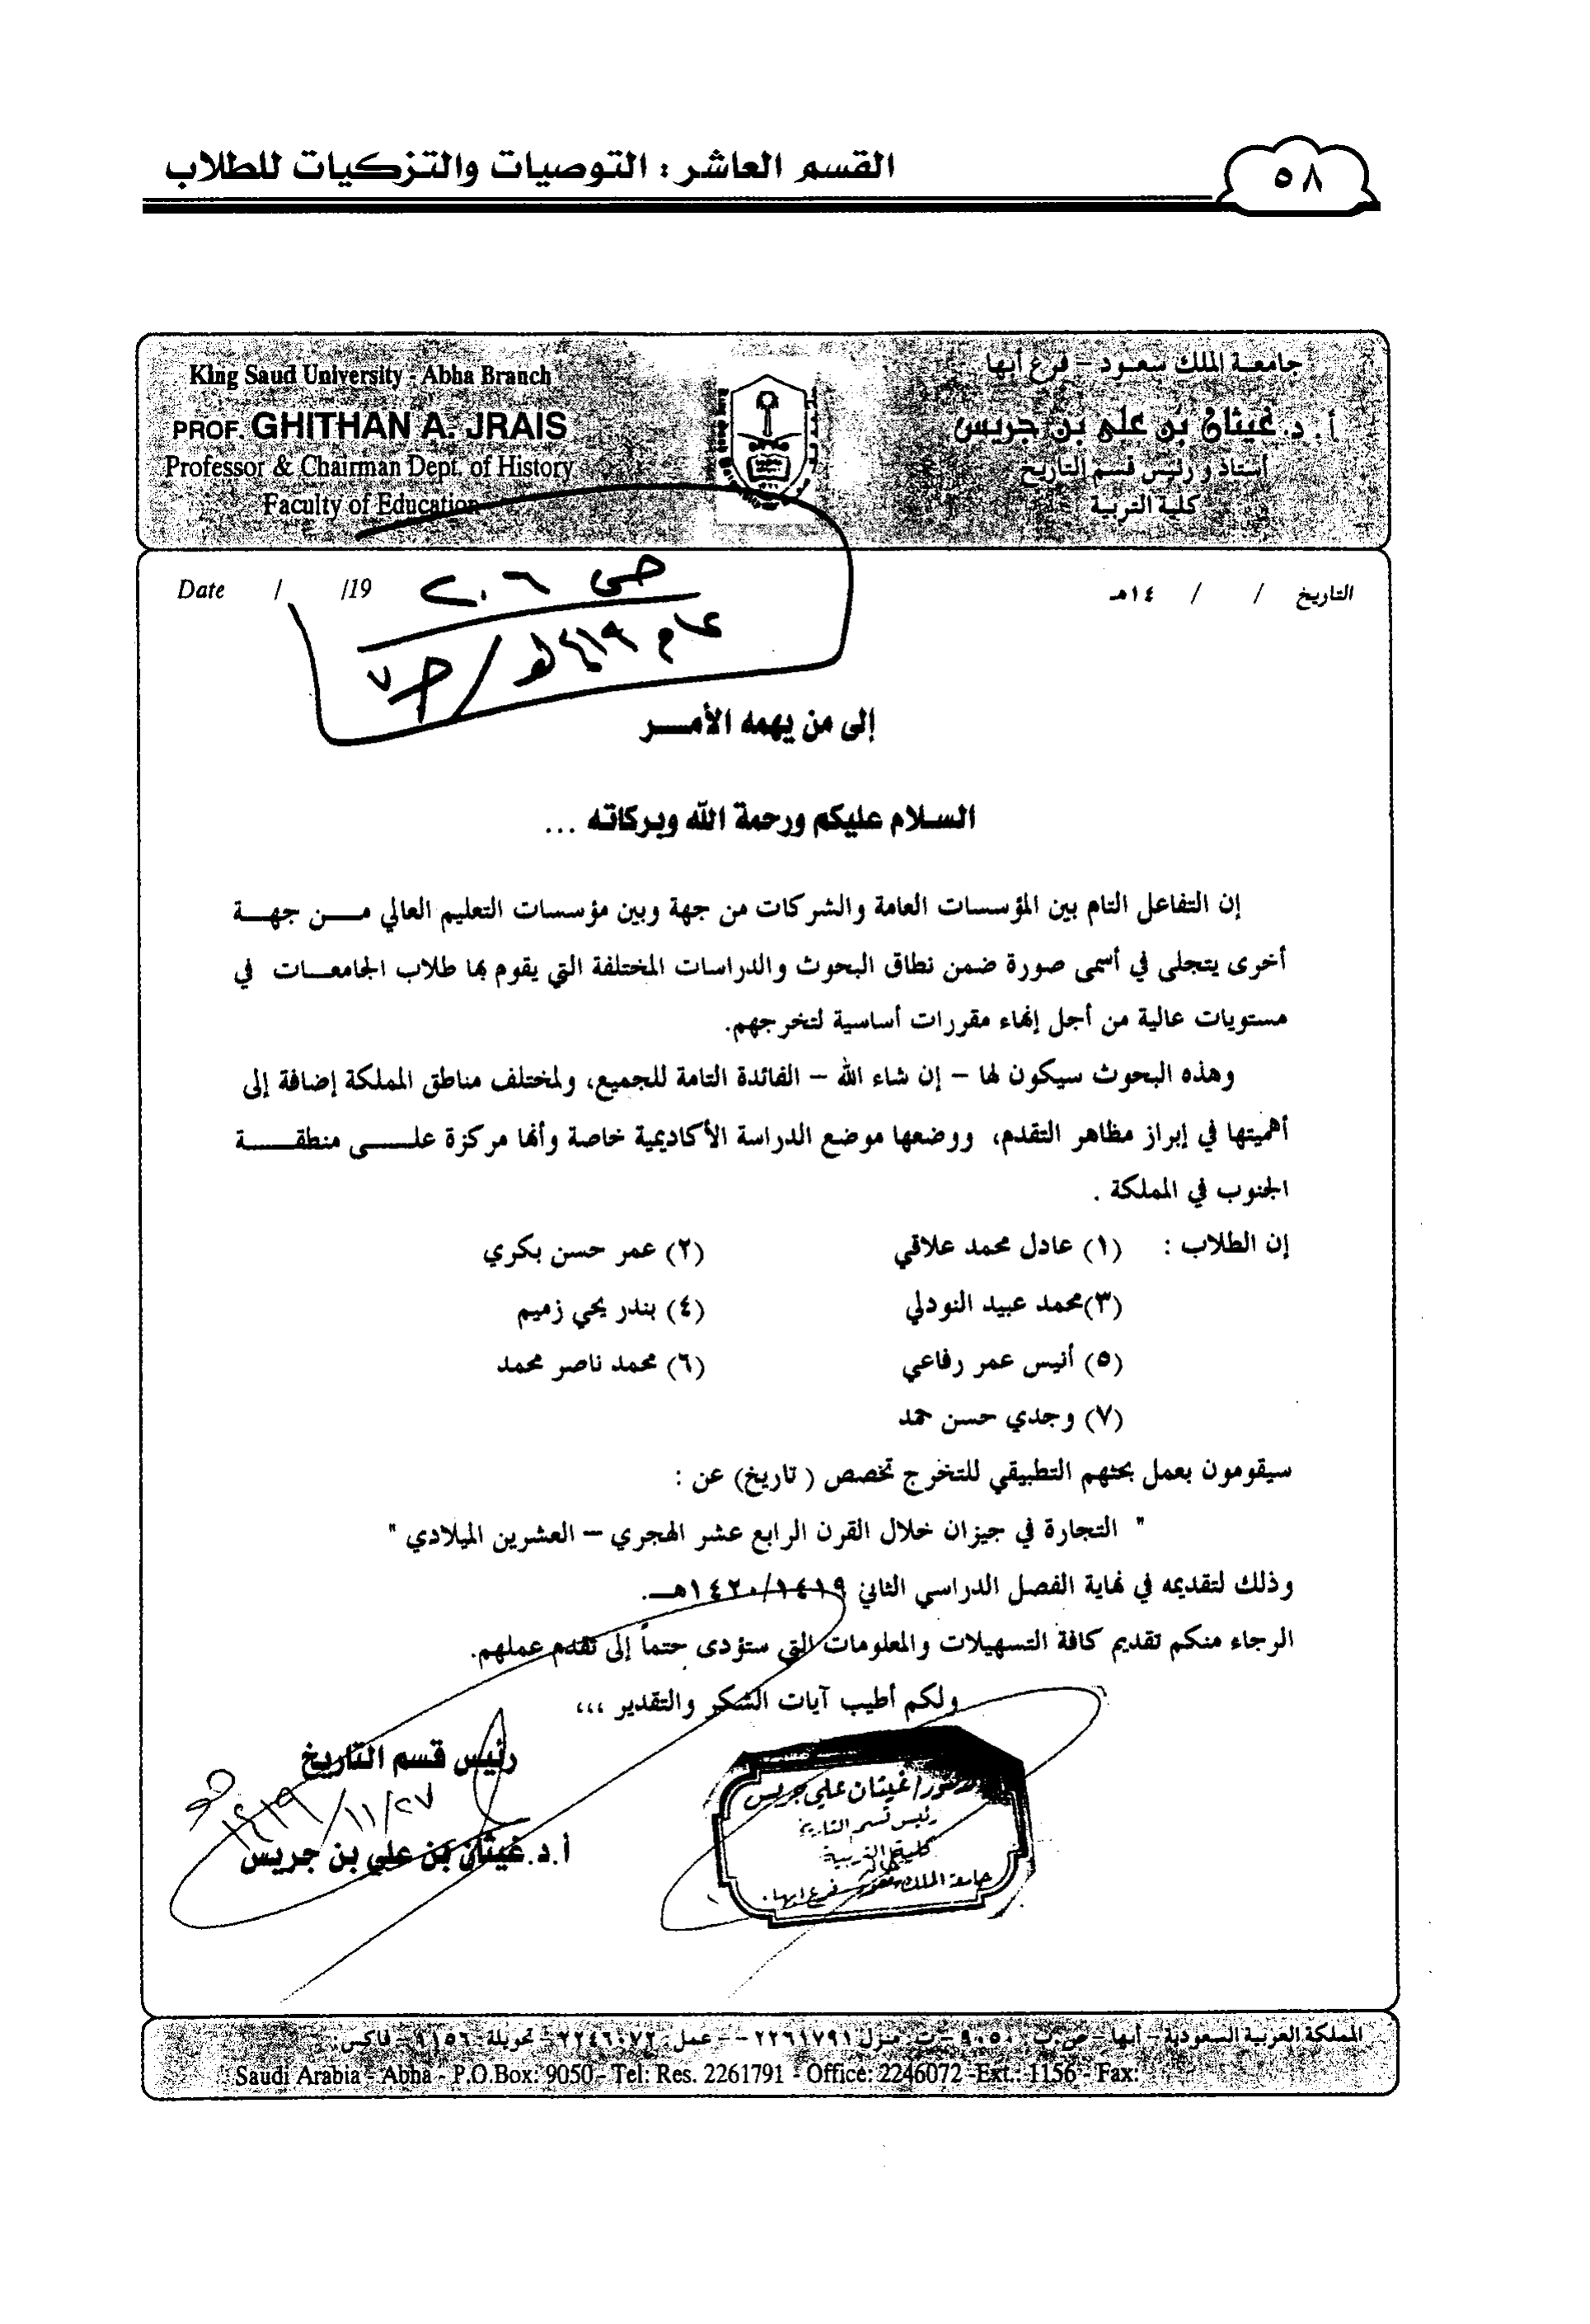 القسم العاشر : التوصيات والتزكيات للطلاب
٥٨
جامعة الملك سعود – فرع أبها
أ. د. غيثان بن علي بن جريس
أستاذ ورئيس قسم التاريخ
كلية التربية
King Saud University - Abha Branch
PROF. GHITHAN A. JRAIS
Professor & Chairman Dept. of History
Faculty of Education
التاريخ / / ١٤هـ
Date / /19
ص ٢٠٦
عام ١٤١٩هـ / ج٧
إلى من يهمه الأمــر
السلام عليكم ورحمة الله وبركاته ...
إن التفاعل التام بين المؤسسات العامة والشركات من جهة وبين مؤسسات التعليم العالي مـــن جهـــة
أخرى يتجلى في أسمى صورة ضمن نطاق البحوث والدراسات المختلفة التي يقوم بها طلاب الجامعـــات في
مستويات عالية من أجل إنهاء مقررات أساسية لتخرجهم.
وهذه البحوث سيكون لها – إن شاء الله – الفائدة التامة للجميع، ولمختلف مناطق المملكة إضافة إلى
أهميتها في إبراز مظاهر التقدم، ووضعها موضع الدراسة الأكاديمية خاصة وأنها مركزة علـــى منطقـــة
الجنوب في المملكة .
إن الطلاب : (١) عادل محمد علاقي (٢) عمر حسن بكري
(٣)محمد عبيد النودلي (٤) بندر يحي زميم
(٥) أنيس عمر رفاعي (٦) محمد ناصر محمد
(٧) وجدي حسن حمد
سيقومون بعمل بحثهم التطبيقي للتخرج تخصص ( تاريخ) عن :
" التجارة في جيزان خلال القرن الرابع عشر الهجري – العشرين الميلادي "
وذلك لتقديمه في نهاية الفصل الدراسي الثاني ١٤٢٠/١٤١٩هـ.
الرجاء منكم تقديم كافة التسهيلات والمعلومات التي ستؤدى حتماً إلى تقدم عملهم.
ولكم أطيب آيات الشكر والتقدير ،،،
رئيس قسم التاريخ
١٤١٩/١١/٢٧هـ
أ.د.غيثان بن علي بن جريس
الدكتور/غيثان علي جريس
رئيس قسم التاريخ
كلية التربية
جامعة الملك سعود فرع ابها.
المملكة العربية السعودية – أبها – ص.ب: ٩٠٥٠ – ت: منزل ٢٢٦١٧٩١ – عمل: ٢٢٤٦٠٧٢ – تحويلة: ١١٥٦ – فاكس:
Saudi Arabia - Abha - P.O.Box: 9050 - Tel: Res. 2261791 - Office: 2246072 -Ext.: 1156 - Fax: